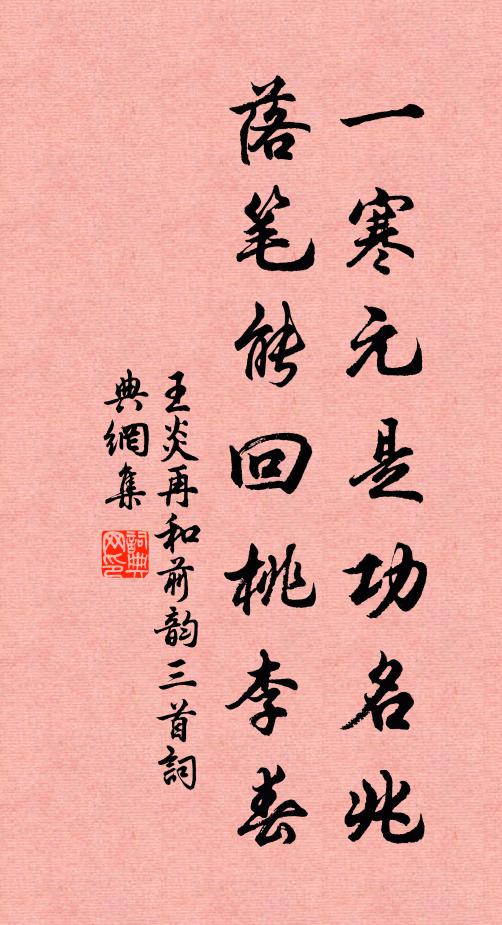 一寒元是功名兆
落笔能回桃李春
王炎再和前韵三首詞
典網集
詞典
网印